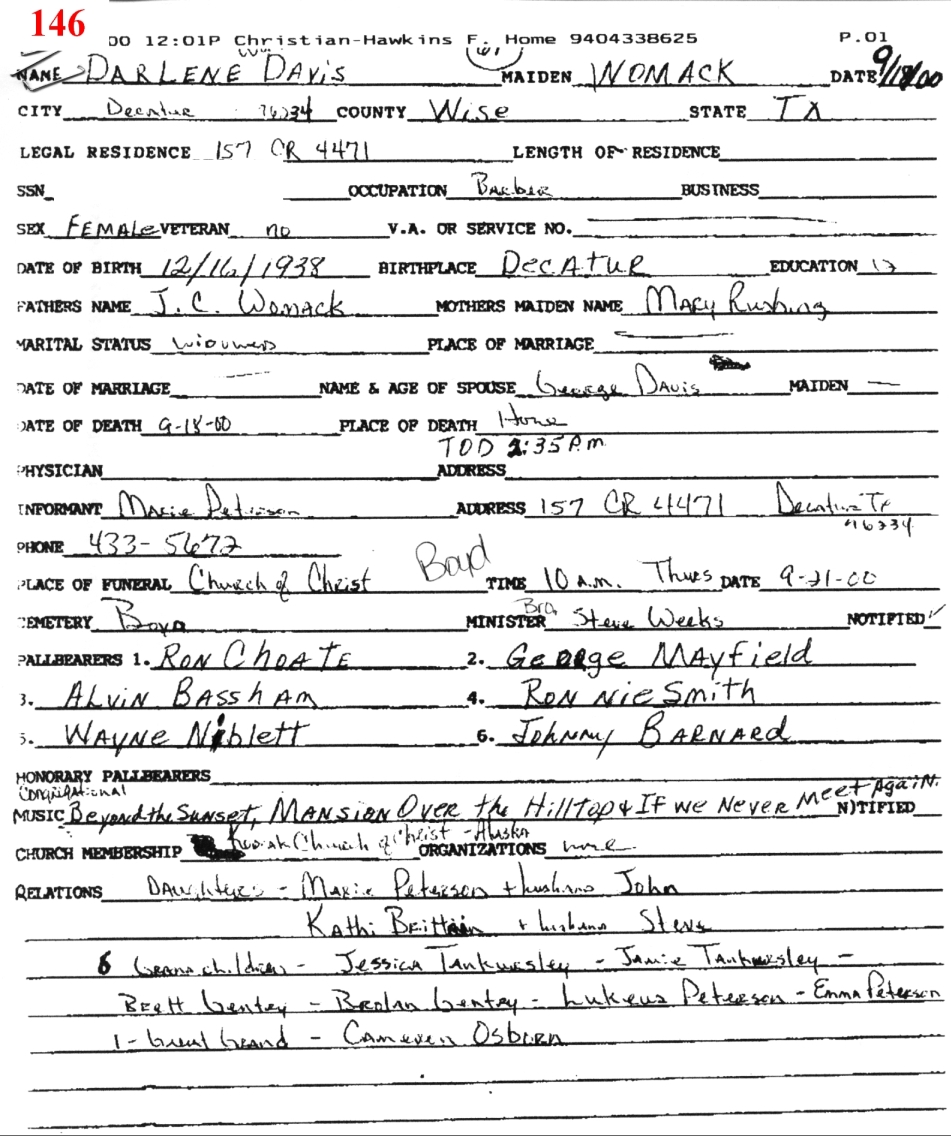 146
00 12:01P Christian-Hawkins F. Home 9404338625 P.01
NAME DARLENE DAVIS MAIDEN WOMACK DATE 9/18/00
CITY Decatur 76234 COUNTY Wise STATE TX
LEGAL RESIDENCE 157 CR 4471 LENGTH OF RESIDENCE
SSN OCCUPATION Barber BUSINESS
SEX FEMALE VETERAN no V.A. OR SERVICE NO.
DATE OF BIRTH 12/16/1938 BIRTHPLACE DECATUR EDUCATION 12
FATHERS NAME J.C. Womack MOTHERS MAIDEN NAME Mary Rushing
MARITAL STATUS PLACE OF MARRIAGE
DATE OF MARRIAGE NAME & AGE OF SPOUSE George Davis MAIDEN —
DATE OF DEATH 9-18-00 PLACE OF DEATH Home
TOD 2:35 P.m.
PHYSICIAN ADDRESS
INFORMANT Marie Peterson ADDRESS 157 CR 4471 Decatur Tx
76234
PHONE 433-5672
PLACE OF FUNERAL Church of Christ Boyd TIME 10 A.m. Thurs DATE 9-21-00
CEMETERY Boyd MINISTER Bro. Steve Weeks NOTIFIED ✓
PALLBEARERS 1. RON CHOATE 2. George MAYfield
3. ALVIN BASSHAM 4. RON NIE Smith
5. WAYNE Niblett 6. JOHNNY BARNARD
HONORARY PALLBEARERS
Congregational
MUSIC Beyond the Sunset, MANSION OVER the HILLTOP & If we Never Meet Again. NOTIFIED
CHURCH MEMBERSHIP Kodiak Church of Christ - Alaska ORGANIZATIONS none
RELATIONS Daughters - Marie Peterson + husband John
Kathi Brittain + husband Steve
6 Grandchildren - Jessica Tankersley - Jamie Tankersley -
Brett Gentry - Brolan Gentry - Lukeus Peterson - Emma Peterson
1 - Great Grand - Cameron Osborn